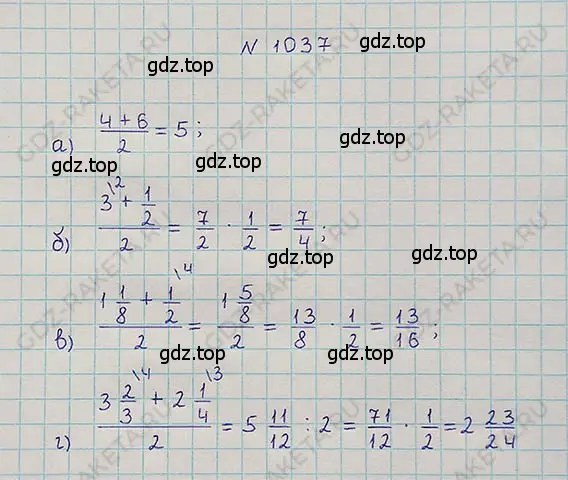 № 1037
gdz.top
gdz.top
а) (4 + 6)/2 = 5;
gdz.top
gdz.top
б) (3\2 + 1/2)/2 = 7/2 · 1/2 = 7/4;
gdz.top
gdz.top
в) (1 1/8 + 1/2\4)/2 = (1 5/8)/2 = 13/8 · 1/2 = 13/16;
gdz.top
gdz.top
г) (3 2/3\4 + 2 1/4\3)/2 = 5 11/12 : 2 = 71/12 · 1/2 = 2 23/24
gdz.top
gdz.top
GDZ-RAKETA.RU
GDZ-RAKETA.RU
GDZ-RAKETA.RU
GDZ-RAKETA.RU
GDZ-RAKETA.RU
GDZ-RAKETA.RU